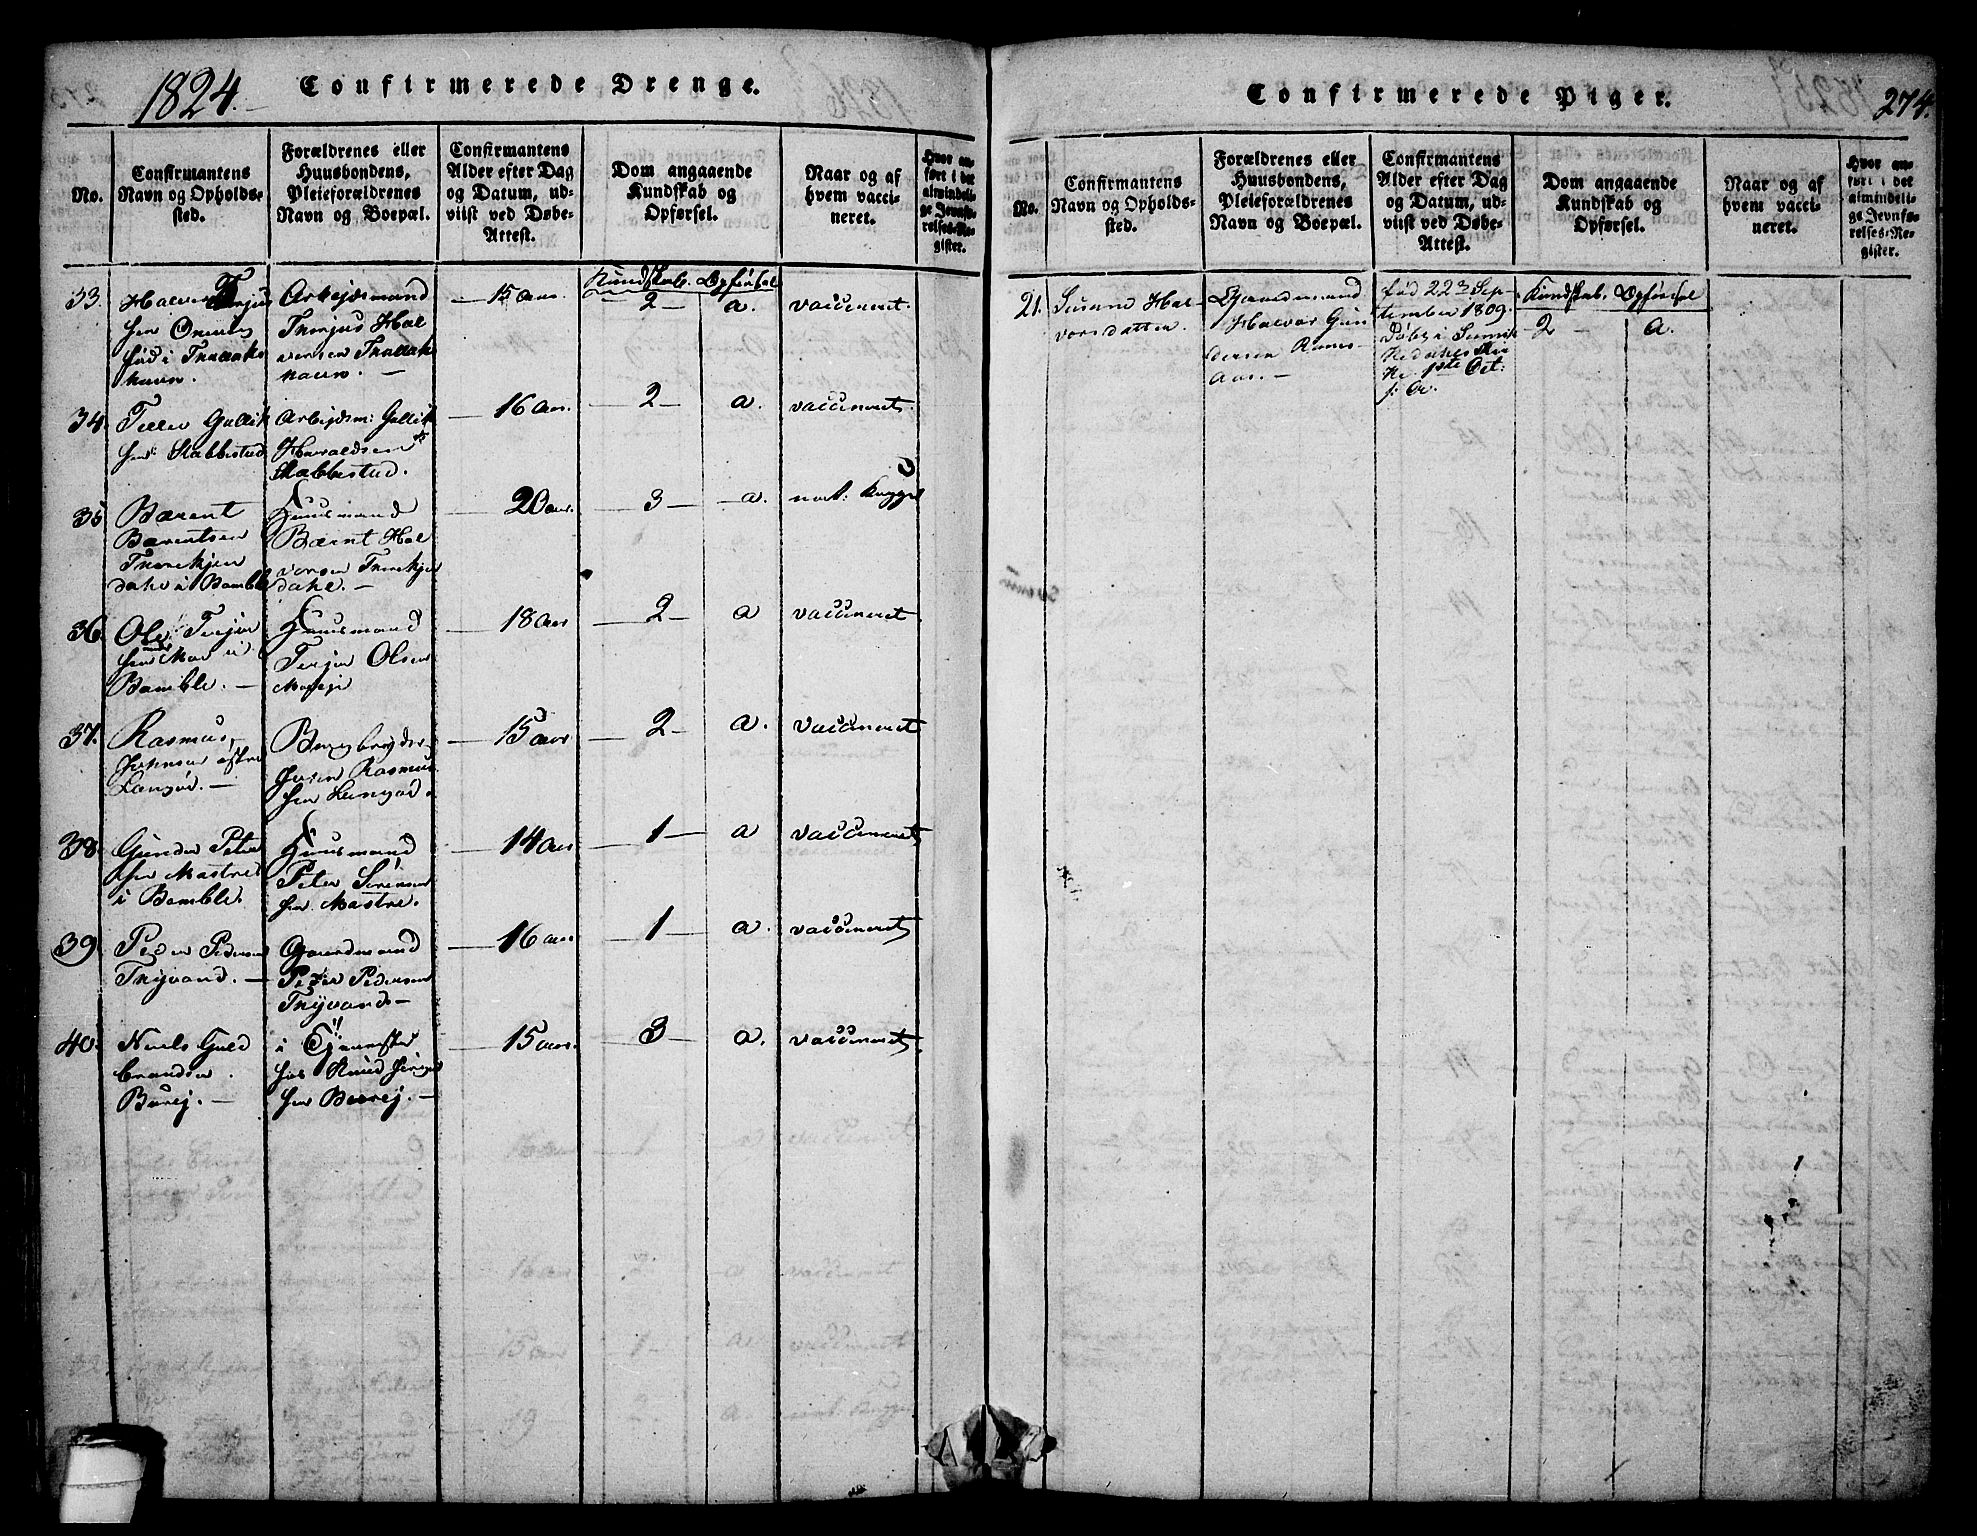 1824.
Confirmerede Drenge.
No.
Confirmantens
Navn og Opholds-
sted.
Forældrenes eller
Huusbondens,
Pleieforældrenes
Navn og Boepæl.
Confirmantens
Alder efter Dag
og Datum, ud-
viist ved Døbe-
Attest.
Dom angaaende
Kundskab og
Opførsel.
Naar og af
hvem vacci-
neret.
Hvor an-
ført i det
almindeli-
ge Jevnfø-
relses-Re-
gister.
Kundskab. Opførsel
33.
Halvor Terjus
sen
født i
havn.
Arbejdsmand
Terjus Hal
vorsen
havn. —
15 Aar.
2 —
a.
vaccineret
34.
Tellev Gullik
sen Stabbestad
Arbejdsm: Gullik
Haraldsen
Stabbestad.
16 Aar.
2 —
a.
vaccineret.
35
Bærent
Bærentsen
Tverekjen
dahl i Bamble
Huusmand
Bærnt Hal
vorsen Tverekjen
dahl. —
20 aar.
3 —
a.
nat: Kopper
36.
Ole Terjer
sen Moe i
Bamble. —
Huusmand
Terjer Olsen
18 Aar
2 —
a
vaccineret
37.
Rasmus
Johnsen
Langøe. —
John Rasmus
sen Langøe.
15 aar
2 —
a.
vaccineret
38.
Gunder Peter
sen Mastrei
i Bamble.
Huusmand
Peter Sørensen
Mastre.
14 Aar
1 —
a
vaccineret
39
Peder Pedersen
Thyvand. —
Gaardmand
Peder Pedersen
Thyvand —
16 aar
1 —
a.
vaccineret
40.
Niels Guld
brandsen
Barej. —
i Tjeneste
hos Knud
sen Barej. —
15 aar.
3 —
a.
vaccineret
Confirmerede Piger.
274.
No.
Confirmantens
Navn og Opholds-
sted.
Forældrenes eller
Huusbondens,
Pleieforældrenes
Navn og Boepæl.
Confirmantens
Alder efter Dag
og Datum, ud-
viist ved Døbe-
Attest.
Dom angaaende
Kundskab og
Opførsel.
Naar og af
hvem vacci-
neret.
Hvor an-
ført i det
almindeli-
ge Jevnfø-
relses-Re-
gister.
Kundskab. Opførsel
21.
Susane Hal
vorsdatter.
Gaardmand
Halvor Gun
dersen
Aas. —
født 22de Sep-
tember 1809.
Døbt i
1ste Oct:
2 —
a.